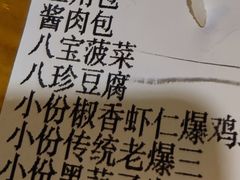 包
酱肉包
八宝菠菜
八珍豆腐
小份椒香虾仁爆鸡
小份传统老爆三
小份黑